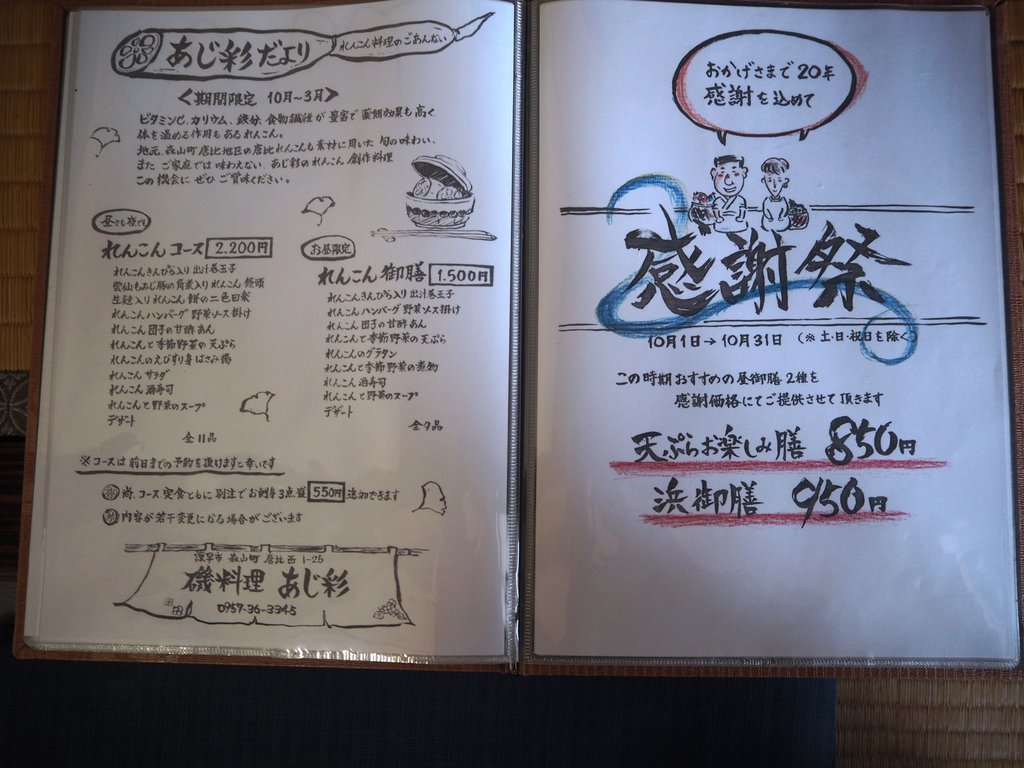 あじ彩だより
れんこん料理のごあんない
<期間限定 10月~3月>
ビタミンC、カリウム、鉄分、食物繊維が豊富で薬餌効果も高く
体を温める作用もあるれんこん。
地元、森山町唐比地区の唐比れんこんを素材に用いた旬の味わい、
また ご家庭では味わえない あじ彩のれんこん創作料理
この機会に ぜひ ご賞味ください。
昼でも夜でも
れんこんコース 2.200円
れんこんきんぴら入り出汁巻玉子
雲仙もみじ豚の角煮入りれんこん饅頭
生麩入りれんこん餅の二色田楽
れんこんハンバーグ野菜ソース掛け
れんこん団子の甘酢あん
れんこんと季節野菜の天ぷら
れんこんのえびすり身はさみ揚
れんこんサラダ
れんこん酒寿司
れんこんと野菜のスープ
デザート
全11品
お昼限定
れんこん御膳 1.500円
れんこんきんぴら入り出汁巻玉子
れんこんハンバーグ野菜ソース掛け
れんこん団子の甘酢あん
れんこんと季節野菜の天ぷら
れんこんのグラタン
れんこんと季節野菜の煮物
れんこん酒寿司
れんこんと野菜のスープ
デザート
全9品
※コースは前日までの予約を頂けますと幸いです
尚、コース定食ともに別注でお刺身3点盛 550円 追加できます
内容が若干変更になる場合がございます
諫早市 森山町 唐比西 1-25
磯料理 あじ彩
0957-36-3345
おかげさまで20年
感謝を込めて
感謝祭
10月1日→10月31日 (※土・日・祝日を除く)
この時期おすすめの昼御膳2種を
感謝価格にてご提供させて頂きます
天ぷらお楽しみ膳 850円
浜御膳 950円